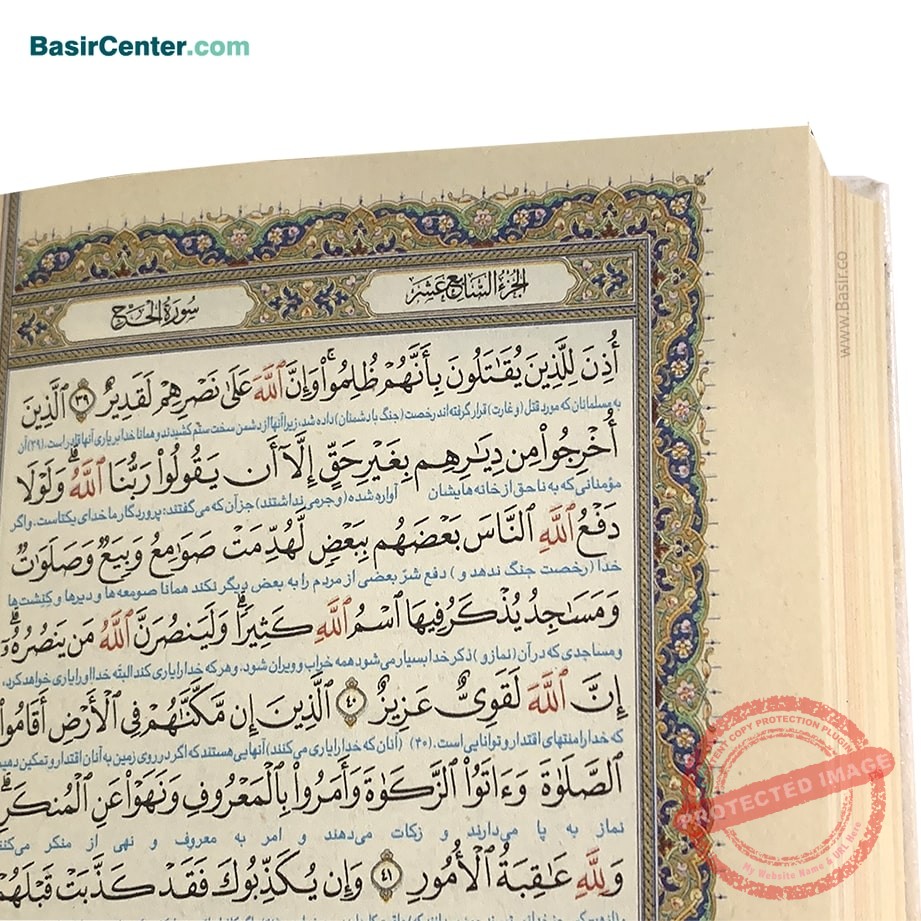 BasirCenter.com
الجزء السابع عشر
سورة الحج
أُذِنَ لِلَّذِينَ يُقَاتَلُونَ بِأَنَّهُمْ ظُلِمُوا۟ ۚ وَإِنَّ ٱللَّهَ عَلَىٰ نَصْرِهِمْ لَقَدِيرٌ ﴿٣٩﴾ ٱلَّذِينَ
به مسلمانان که مورد قتل (و غارت) قرار گرفته اند رخصت (جنگ با دشمنان) داده شد، زیرا آنها از دشمن سخت ستم کشیدند و همانا خدا بر یاری آنها قادر است. (۳۹) آن
أُخْرِجُوا۟ مِن دِيَارِهِم بِغَيْرِ حَقٍّ إِلَّآ أَن يَقُولُوا۟ رَبُّنَا ٱللَّهُ ۗ وَلَوْلَا
مؤمنانی که به ناحق از خانه هایشان آواره شده (و جرمی نداشتند) جز آن که می گفتند: پروردگار ما خدای یکتاست. و اگر
دَفْعُ ٱللَّهِ ٱلنَّاسَ بَعْضَهُم بِبَعْضٍ لَّهُدِّمَتْ صَوَامِعُ وَبِيَعٌ وَصَلَوَاتٌ
خدا (رخصت جنگ ندهد و) دفع شرّ بعضی از مردم را به بعض دیگر نکند همانا صومعه ها و دیرها و کنِشت ها
وَمَسَاجِدُ يُذْكَرُ فِيهَا ٱسْمُ ٱللَّهِ كَثِيرًا ۗ وَلَيَنصُرَنَّ ٱللَّهُ مَن يَنصُرُهُۥٓ ۗ
و مساجدی که در آن (نماز و) ذکر خدا بسیار می شود همه خراب و ویران شود. و هر که خدا را یاری کند البته خدا او را یاری خواهد کرد،
إِنَّ ٱللَّهَ لَقَوِىٌّ عَزِيزٌ ﴿٤٠﴾ ٱلَّذِينَ إِن مَّكَّنَّاهُمْ فِى ٱلْأَرْضِ أَقَامُوا۟
که خدا را منتهای اقتدار و توانایی است. (۴۰) (آنان که خدا را یاری می کنند) آنهایی هستند که اگر در روی زمین به آنان اقتدار و تمکین دهیم
ٱلصَّلَوٰةَ وَءَاتَوُا۟ ٱلزَّكَوٰةَ وَأَمَرُوا۟ بِٱلْمَعْرُوفِ وَنَهَوْا۟ عَنِ ٱلْمُنكَرِ ۗ
نماز به پا می دارند و زکات می دهند و امر به معروف و نهی از منکر می کنند
وَلِلَّهِ عَاقِبَةُ ٱلْأُمُورِ ﴿٤١﴾ وَإِن يُكَذِّبُوكَ فَقَدْ كَذَّبَتْ قَبْلَهُمْ
www.Basir.co
MY COPY PROTECTION PLUGIN
PROTECTED IMAGE
My Website Name & URL Here